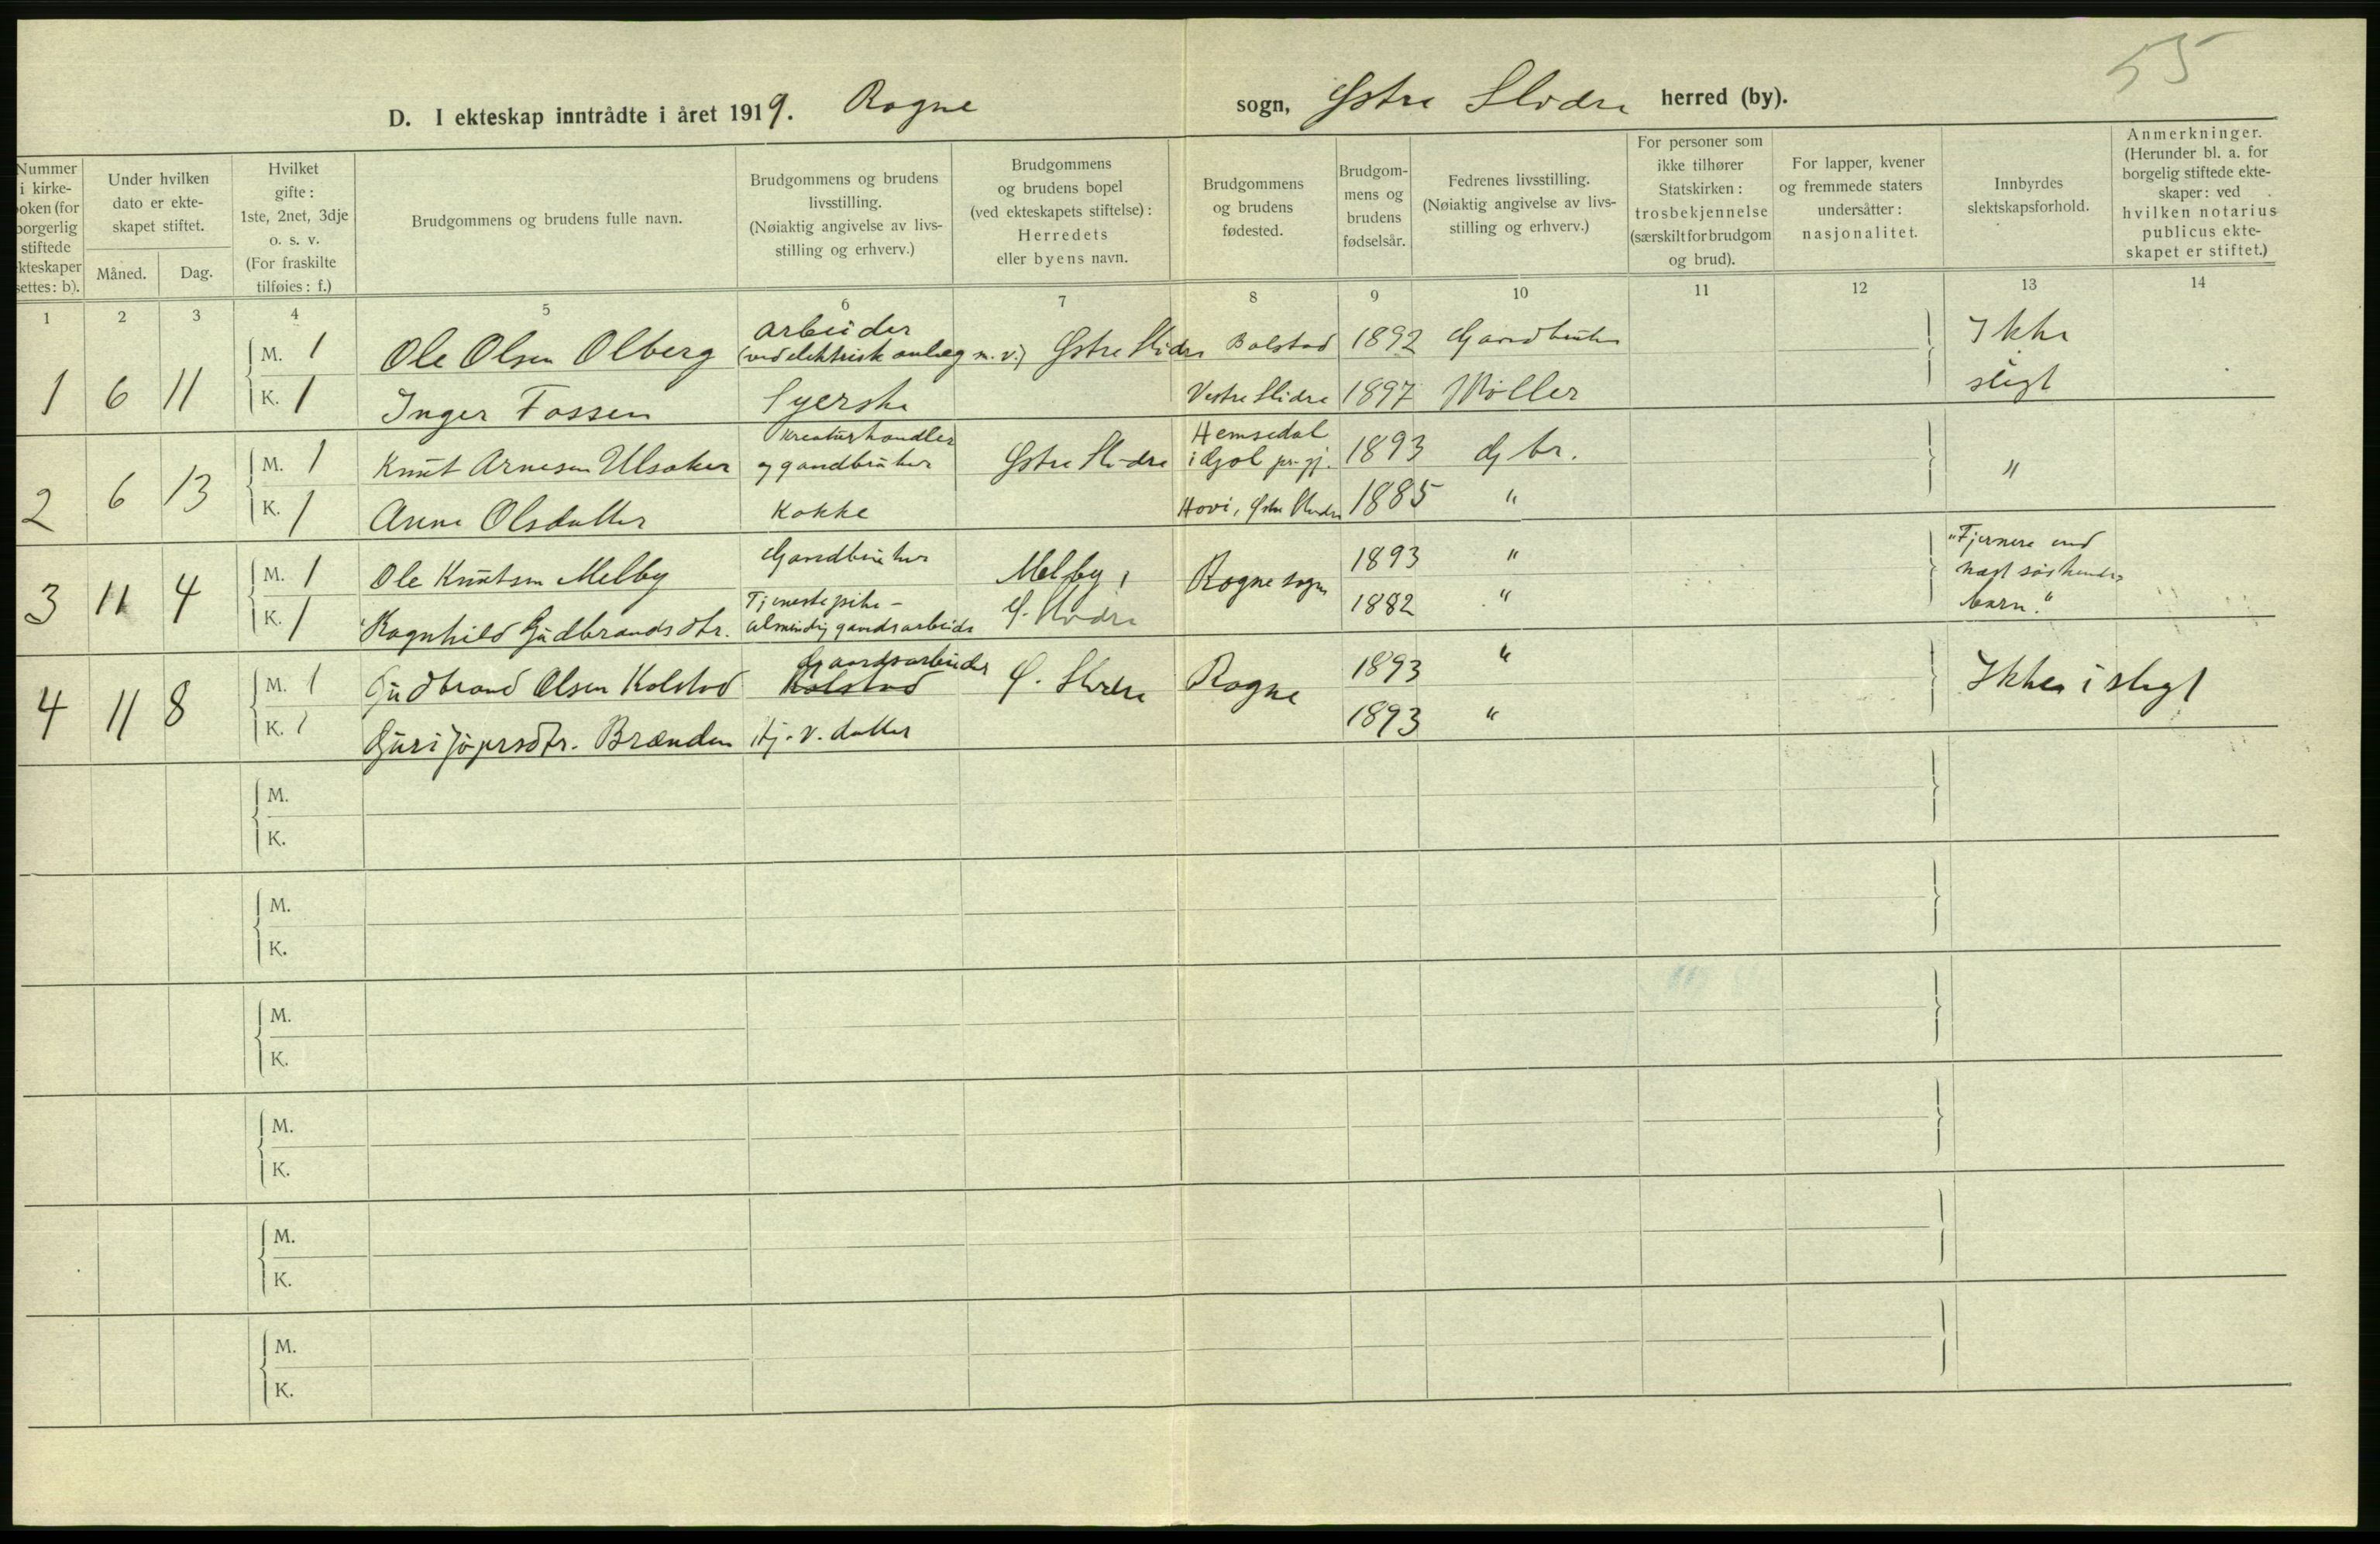 55
D. I ekteskap inntrådte i året 1919. Rogne sogn, Østre Slidre herred (by).
Nummer i kirke-
oken (for
orgerlig
stiftede
kteskaper
settes: b).
Under hvilken
dato er ekte-
skapet stiftet.
Måned. Dag.
Hvilket
gifte:
1ste, 2net, 3dje
o. s. v.
(For fraskilte
tilføies: f.)
Brudgommens og brudens fulle navn.
Brudgommens og brudens
livsstilling.
(Nøiaktig angivelse av livs-
stilling og erhverv.)
Brudgommens
og brudens bopel
(ved ekteskapets stiftelse):
Herredets
eller byens navn.
Brudgommens
og brudens
fødested.
Brudgom-
mens og
brudens
fødselsår.
Fedrenes livsstilling.
(Nøiaktig angivelse av livs-
stilling og erhverv.)
For personer som
ikke tilhører
Statskirken:
trosbekjennelse
(særskilt for brudgom
og brud).
For lapper, kvener
og fremmede staters
undersåtter:
nasjonalitet.
Innbyrdes
slektskapsforhold.
Anmerkninger.
(Herunder bl. a. for
borgelig stiftede ekte-
skaper: ved
hvilken notarius
publicus ekte-
skapet er stiftet.)
1 2 3 4 5 6 7 8 9 10 11 12 13 14
1 6 11
M. 1 Ole Olsen Olberg arbeider (ved elektrisk anlæg m. v.) Østre Slidre Bolstad 1892 Gaardbruker Ikke
K. 1 Inger Fossen Syerske Vestre Slidre 1897 Møller slegt
2 6 13
M. 1 Knut Arnesen Ulsaker Kreaturhandler og gaardbruker Østre Slidre Hemsedal i Gol pr.gj. 1893 Gbr. "
K. 1 Anne Olsdatter Kokke Hovi, Østre Slidre 1885 "
3 11 4
M. 1 Ole Knutsen Melby Gaardbruker Melby, Ø. Slidre Rogne sogn 1893 " "Fjernere end
næstsøskende
barn."
K. 1 Ragnhild Gudbrandsdtr. Tjenestepike - almindelig gaardsarbeide 1882 "
4 11 8
M. 1 Gudbrand Olsen Kolstad Gaardsarbeider Kolstad Ø. Slidre Rogne 1893 " Ikke i slegt
K. 1 Guri Jøgersdtr. Brænden Hj. v. datter 1893 "
M.
K.
M.
K.
M.
K.
M.
K.
M.
K.
M.
K.